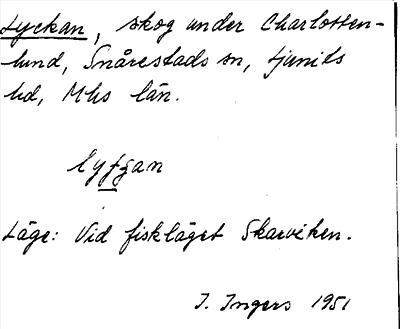 Lyckan, skog under Charlotten-
lund, Snårestads sn, Ljunits
hd, Mhs län.
lyfgan
Läge: Vid fiskläget Skarviken.
I. Ingers 1951